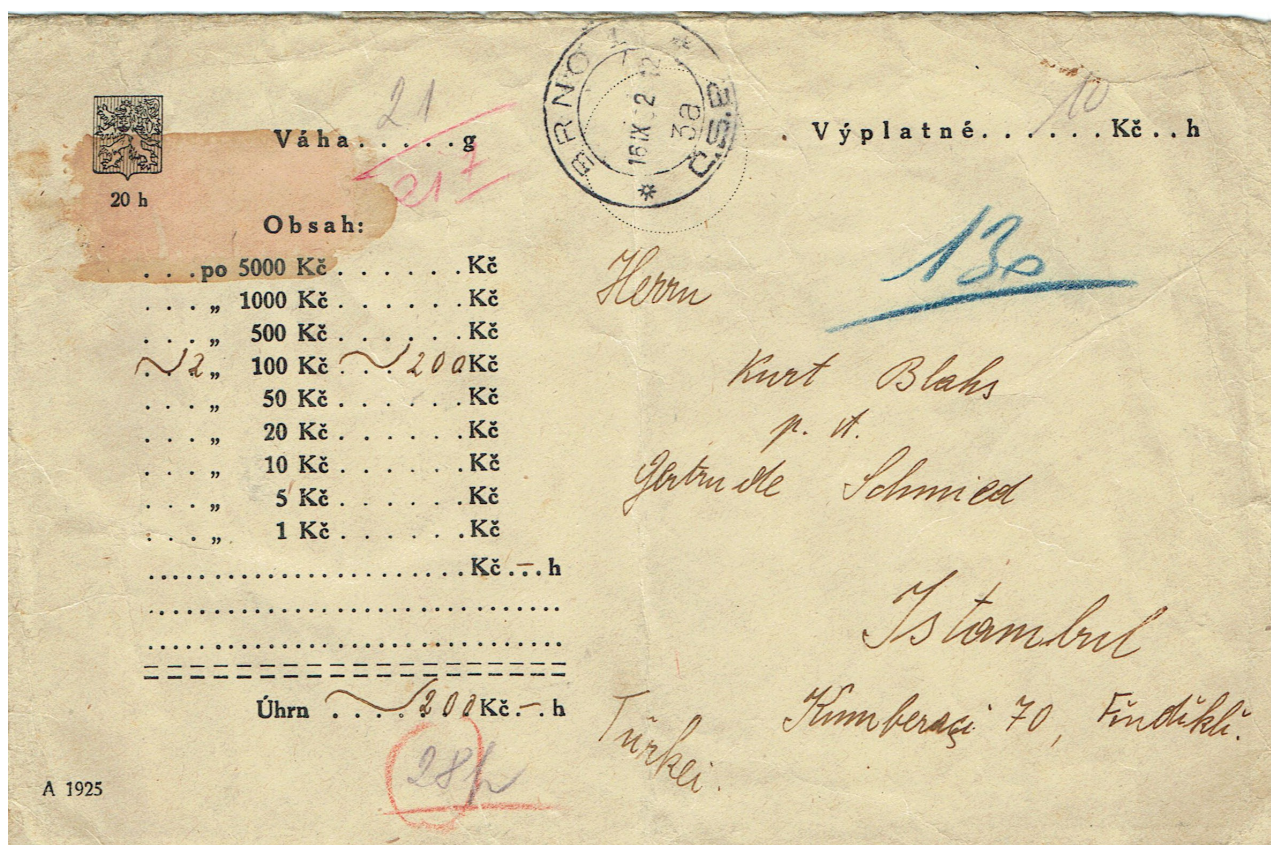 BRNO 1
16 IX 32 12
3a
Č.S.R.
20 h
Váha.....g
21
217
Výplatné......Kč..h
10
Obsah:
...po 5000 Kč.......Kč
....„ 1000 Kč.......Kč
....„ 500 Kč.......Kč
2„ 100 Kč...200Kč
....„ 50 Kč.......Kč
....„ 20 Kč.......Kč
....„ 10 Kč.......Kč
....„ 5 Kč.......Kč
....„ 1 Kč.......Kč
Kč.—.h
Úhrn....200Kč.—.h
A 1925
130
Herrn
Kurt Blahs
Gertrude Schmied
Istambul
Kumberaçi 70, Findikli.
Türkei.